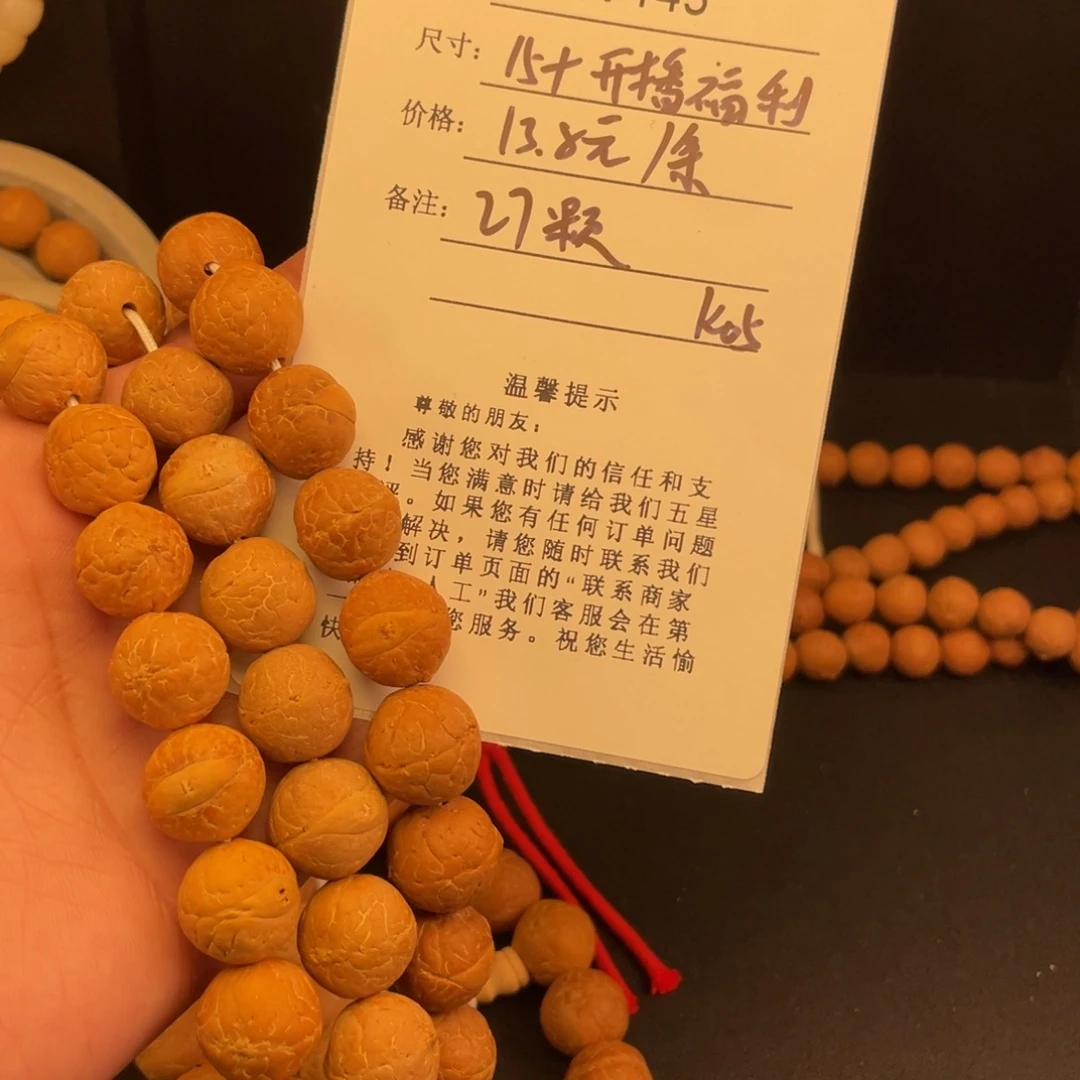 尺寸：15+开播福利
价格：13.8元/条
备注：27颗
K05
温馨提示
尊敬的朋友：
感谢您对我们的信任和支
持！当您满意时请给我们五星
。如果您有任何订单问题
解决，请您随时联系我们
到订单页面的“联系商家
人工”我们客服会在第
快 您服务。祝您生活愉